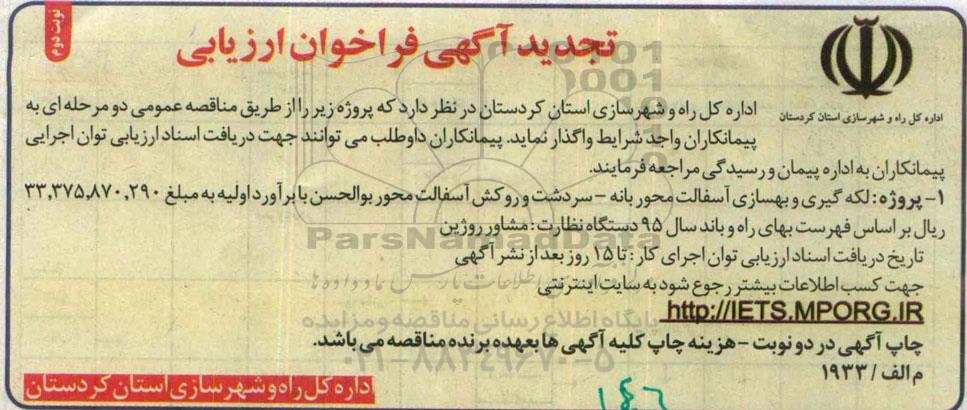 نوبت دوم
تجدید آگهی فراخوان ارزیابی
اداره کل راه و شهرسازی استان کردستان
اداره کل راه و شهرسازی استان کردستان در نظر دارد که پروژه زیر را از طریق مناقصه عمومی دو مرحله ای به
پیمانکاران واجد شرایط واگذار نماید. پیمانکاران داوطلب می توانند جهت دریافت اسناد ارزیابی توان اجرایی
پیمانکاران به اداره پیمان و رسیدگی مراجعه فرمایند.
۱- پروژه : لکه گیری و بهسازی آسفالت محور بانه - سردشت و روکش آسفالت محور بوالحسن با برآورد اولیه به مبلغ ۳۳,۳۷۵,۸۷۰,۲۹۰
ریال بر اساس فهرست بهای راه و باند سال ۹۵ دستگاه نظارت : مشاور روژین
ParsNamadData
تاریخ دریافت اسناد ارزیابی توان اجرای کار : تا ۱۵ روز بعد از نشر آگهی
جهت کسب اطلاعات بیشتر رجوع شود به سایت اینترنتی
http://IETS.MPORG.IR
پایگاه اطلاع رسانی مناقصه و مزایده
چاپ آگهی در دو نوبت - هزینه چاپ کلیه آگهی ها بعهده برنده مناقصه می باشد.
۰۲۱-۸۸۳۴۹۶۷۰-۵
م الف / ۱۹۳۳
داره کل راه و شهرسازی استان کردستان